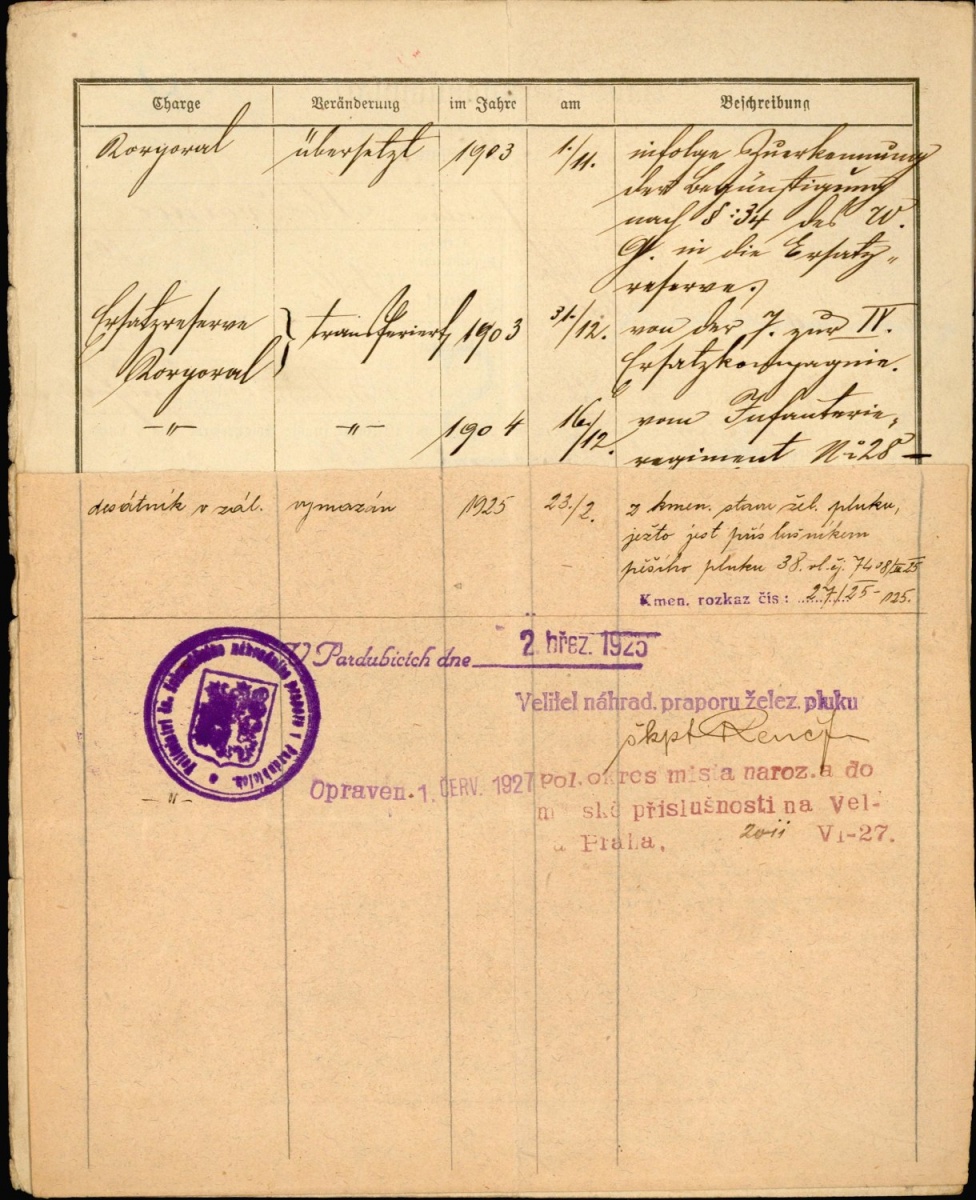 Charge Veränderung im Jahre am Beschreibung
Korporal übersetzt 1903 1./11. infolge Zuerkennung
der Begünstigung
nach §:34 des W.
G. in die Ersatz„
reserve.
Ersatzreserve transferiert 1903 31./12. von der 7. zur IV.
Korporal Ersatzkompagnie.
—„— —„— 1904 16/12. vom Infanterie„
regiment No 28 —
desátník v zál. vymazán 1925 23./2. z kmen. stavu žel. pluku,
ježto jest příslušníkem
pěšího pluku 38. vl. čj.
Kmen. rozkaz čís: 27/25
V Pardubicích dne 2. břez. 1925
Velitel náhrad. praporu želez. pluku
škpt
Opraven 1. ČERV. 1927 pol. okres mista naroz. a do
m ské přislušnosti na Vel-
Praha, VI-27.
—„—